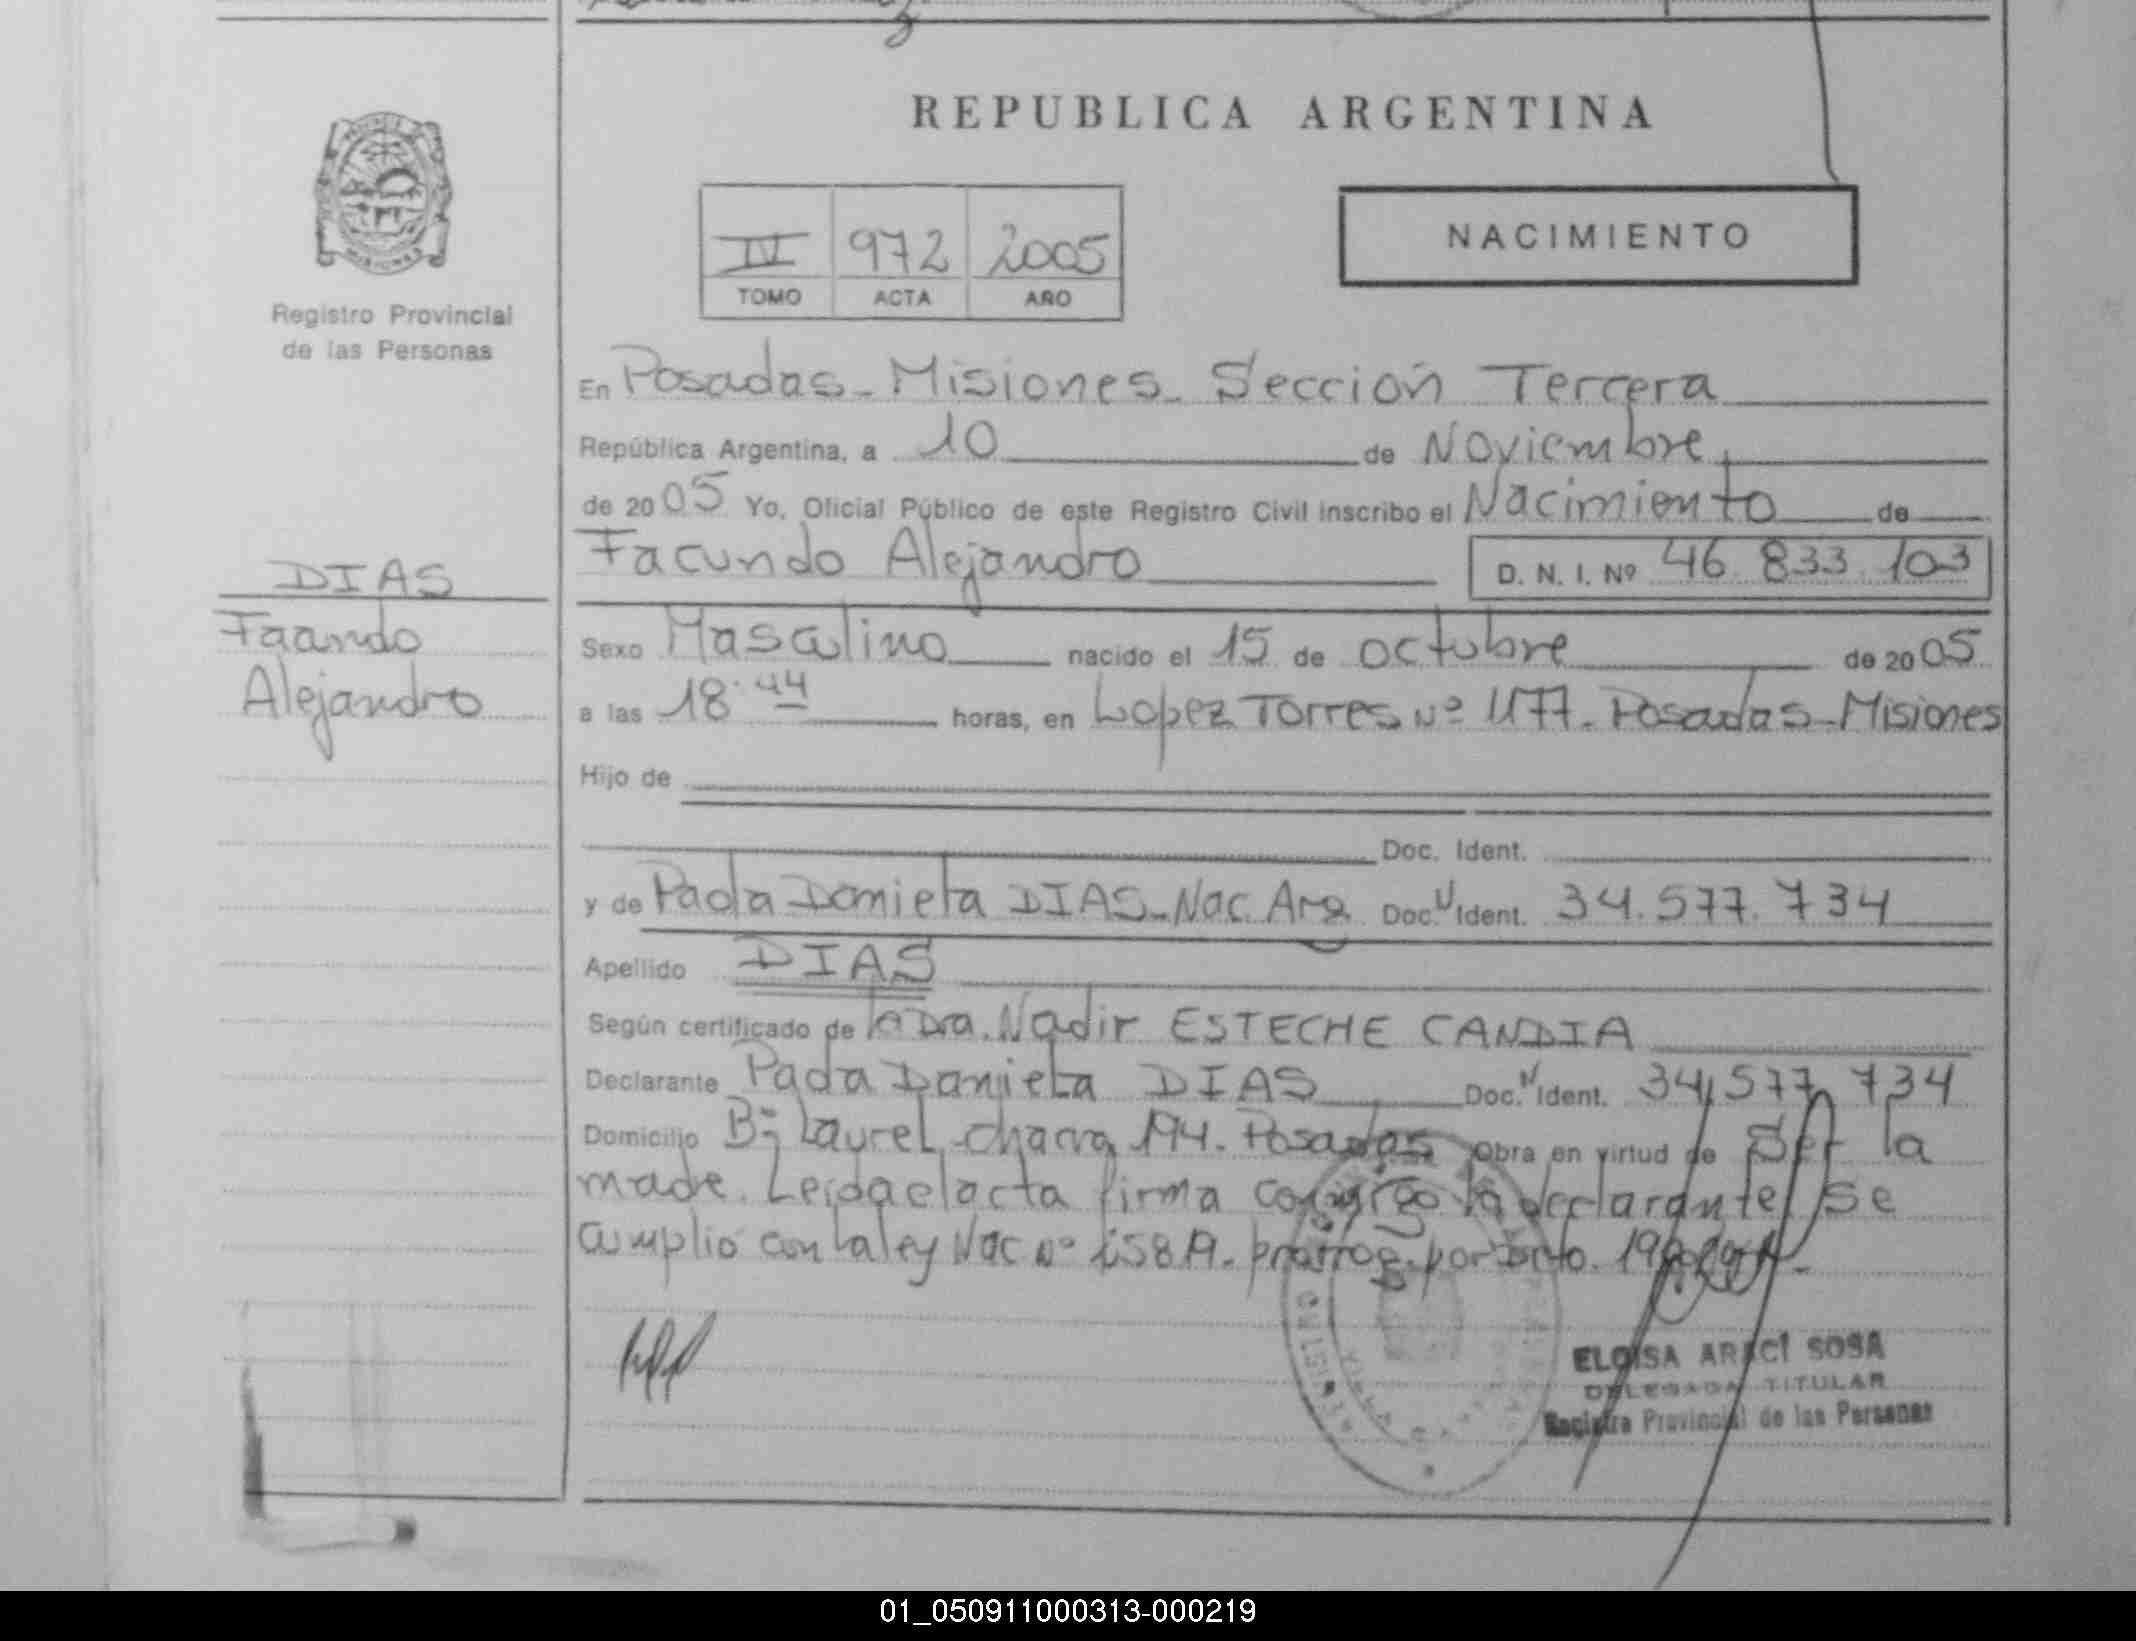 REPUBLICA ARGENTINA
IV 972 2005
TOMO ACTA AÑO
NACIMIENTO
Registro Provincial
de las Personas
En Posadas - Misiones - Sección Tercera
República Argentina, a 10 de Noviembre
de 2005 Yo, Oficial Público de este Registro Civil inscribo el Nacimiento de
Facundo Alejandro D. N. I. Nº 46.833.103
DIAS
Facundo
Alejandro
Sexo Masculino nacido el 15 de octubre de 2005
a las 18:44 horas, en Lopez Torres Nº 1177 - Posadas - Misiones
Hijo de
Doc. Ident.
y de Paola Daniela DIAS - Nac. Arg Doc. N Ident. 34.577.734
Apellido DIAS
Según certificado de la Dra. Nadir ESTECHE CANDIA
Declarante Paola Daniela DIAS Doc. N Ident. 34.577.734
Domicilio Bº Laurel chacra 194. Posadas Obra en virtud de Ser la
madre. Leida el acta firma conmigo la declarante Se
cumplio con la ley Nac Nº prorrog. por Dcto.
ELOISA ARACI SOSA
DELEGADA TITULAR
Registro Provincial de las Personas
01_050911000313-000219